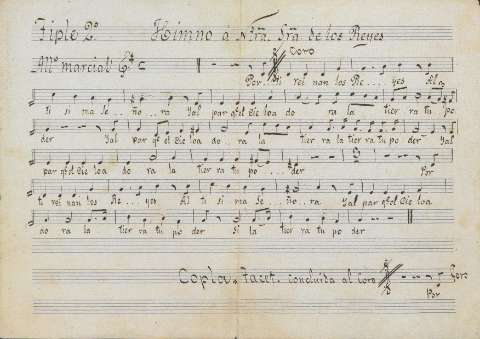 Tiple 2º Himno á Ntra. Sra. de los Reyes
Coro
Mº marcial
Por ti rei nan los Re... yes Al
ti si ma Se... ño.. ra Yal par qe el Cie lo a do ra la tier ra tu po
der Yal par qe el Cie lo a do.. ra la tier ra la tier ra tu po der Yal
par qe el Cie lo a do ra la tier ra tu po... der Por
ti rei nan los Re... yes Al ti si ma Se... ño.. ra Yal par qe el Cie lo a
do ra la tier ra tu po der Si la tier ra tu po der
Copla. Tacet. concluida al Coro Coro
Por